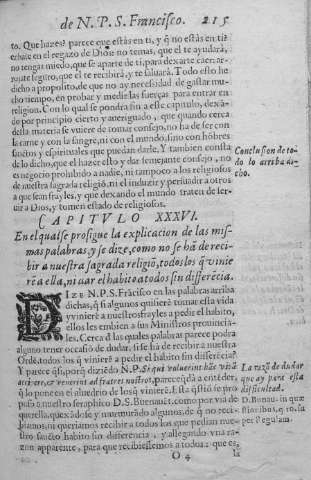 de N. P. S. Francisco. 215
to. Que hazes? parece que estàs en ti, y q̃ no estàs en ti?
echate en el regazo de Dios: no temas, que el te ayudarà,
no tengas miedo, que se aparte de ti, para dexarte caer: ar-
rojate seguro, que el te recibirà, y te saluarà. Todo esto he
dicho a proposito, de que no ay necessidad de gastar mu-
cho tiempo, en probar y medir las fuerças para entrar en
religion. Con lo qual se pondra fin a este capitulo, dexã-
do por principio cierto y aueriguado, que quando cerca
desta materia se vuiere de tomar consejo, no ha de ser con
la carne y con la sangre, ni con el mundo, sino con hõbres
sanctos y espirituales que puedan darle. Y tambien consta
de lo dicho, que el hazer esto y dar semejante consejo, no
es negocio prohibido a nadie, ni tampoco a los religiosos
de nuestra sagrada religiõ, ni el induzir y persuadir a otros
a que sean frayles, y que dexando el mundo traten de ser-
uir a Dios, y tomen estado de religiosos.
Conclusion de to-
do lo arriba di-
cho.
CAPITVLO XXXVI.
En el qual se prosigue la explicacion de las mis-
mas palabras, y se dize, como no se hã de reci-
bir a nuestra sagrada religiõ, todos los q̃ vinie
rẽ a ella, ni dar el habito a todos sin differẽcia.
DIZE N. P. S. Frãcisco en las palabras arriba
dichas, q̃ si algunos quisierẽ tomar esta vida
y vinierẽ a nuestros frayles a pedir el habito,
ellos les embien a sus Ministros prouincia-
les. Cerca d las quales palabras parece podra
alguno tener occasiõ de dudar, si se hã de recibir a nuestra
Ordẽ todos los q̃ vinierẽ a pedir el habito sin differẽcia?
Y parece q̃ si, porq̃ diziẽdo N. P. Si qui voluerint hãc vitã
accipere, & venerint ad fratres nostros, parece q̃ da a entẽder,
q̃ lo pone en el aluedrio de los q̃ vinierẽ. Esta q̃stiõ se pro
puso a nuestro seraphico D. S. Buenauẽt. como por via de
querella, quexãdose y murmurãdo algunos, de q̃ no reci-
biamos, ni queriamos recibir a todos los que pedian nue-
stro sancto habito sin differencia, y allegando vna ra-
zon apparente, para que recibiessemos a todos: que es,
La razõ de dudar
que ay para esta
difficultad.
D. Bonau. in quæ
stionibus, q. 10. su
per regulam.
O 4 la